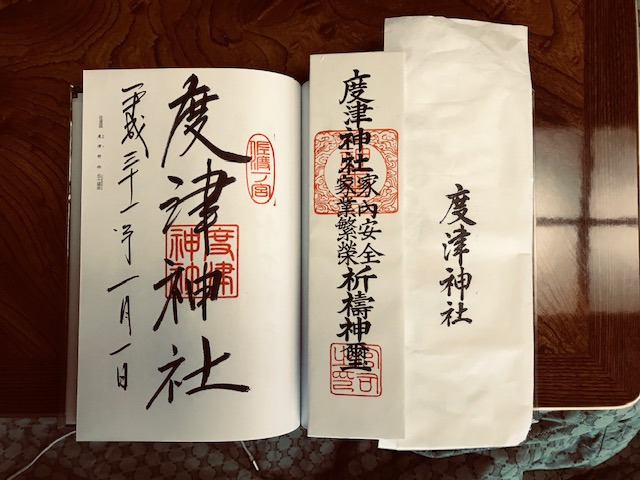 度津神社
度津神社
家内安全
家業繁榮
祈禱神璽
宮司之印
度津神社
平成三十一年一月一日